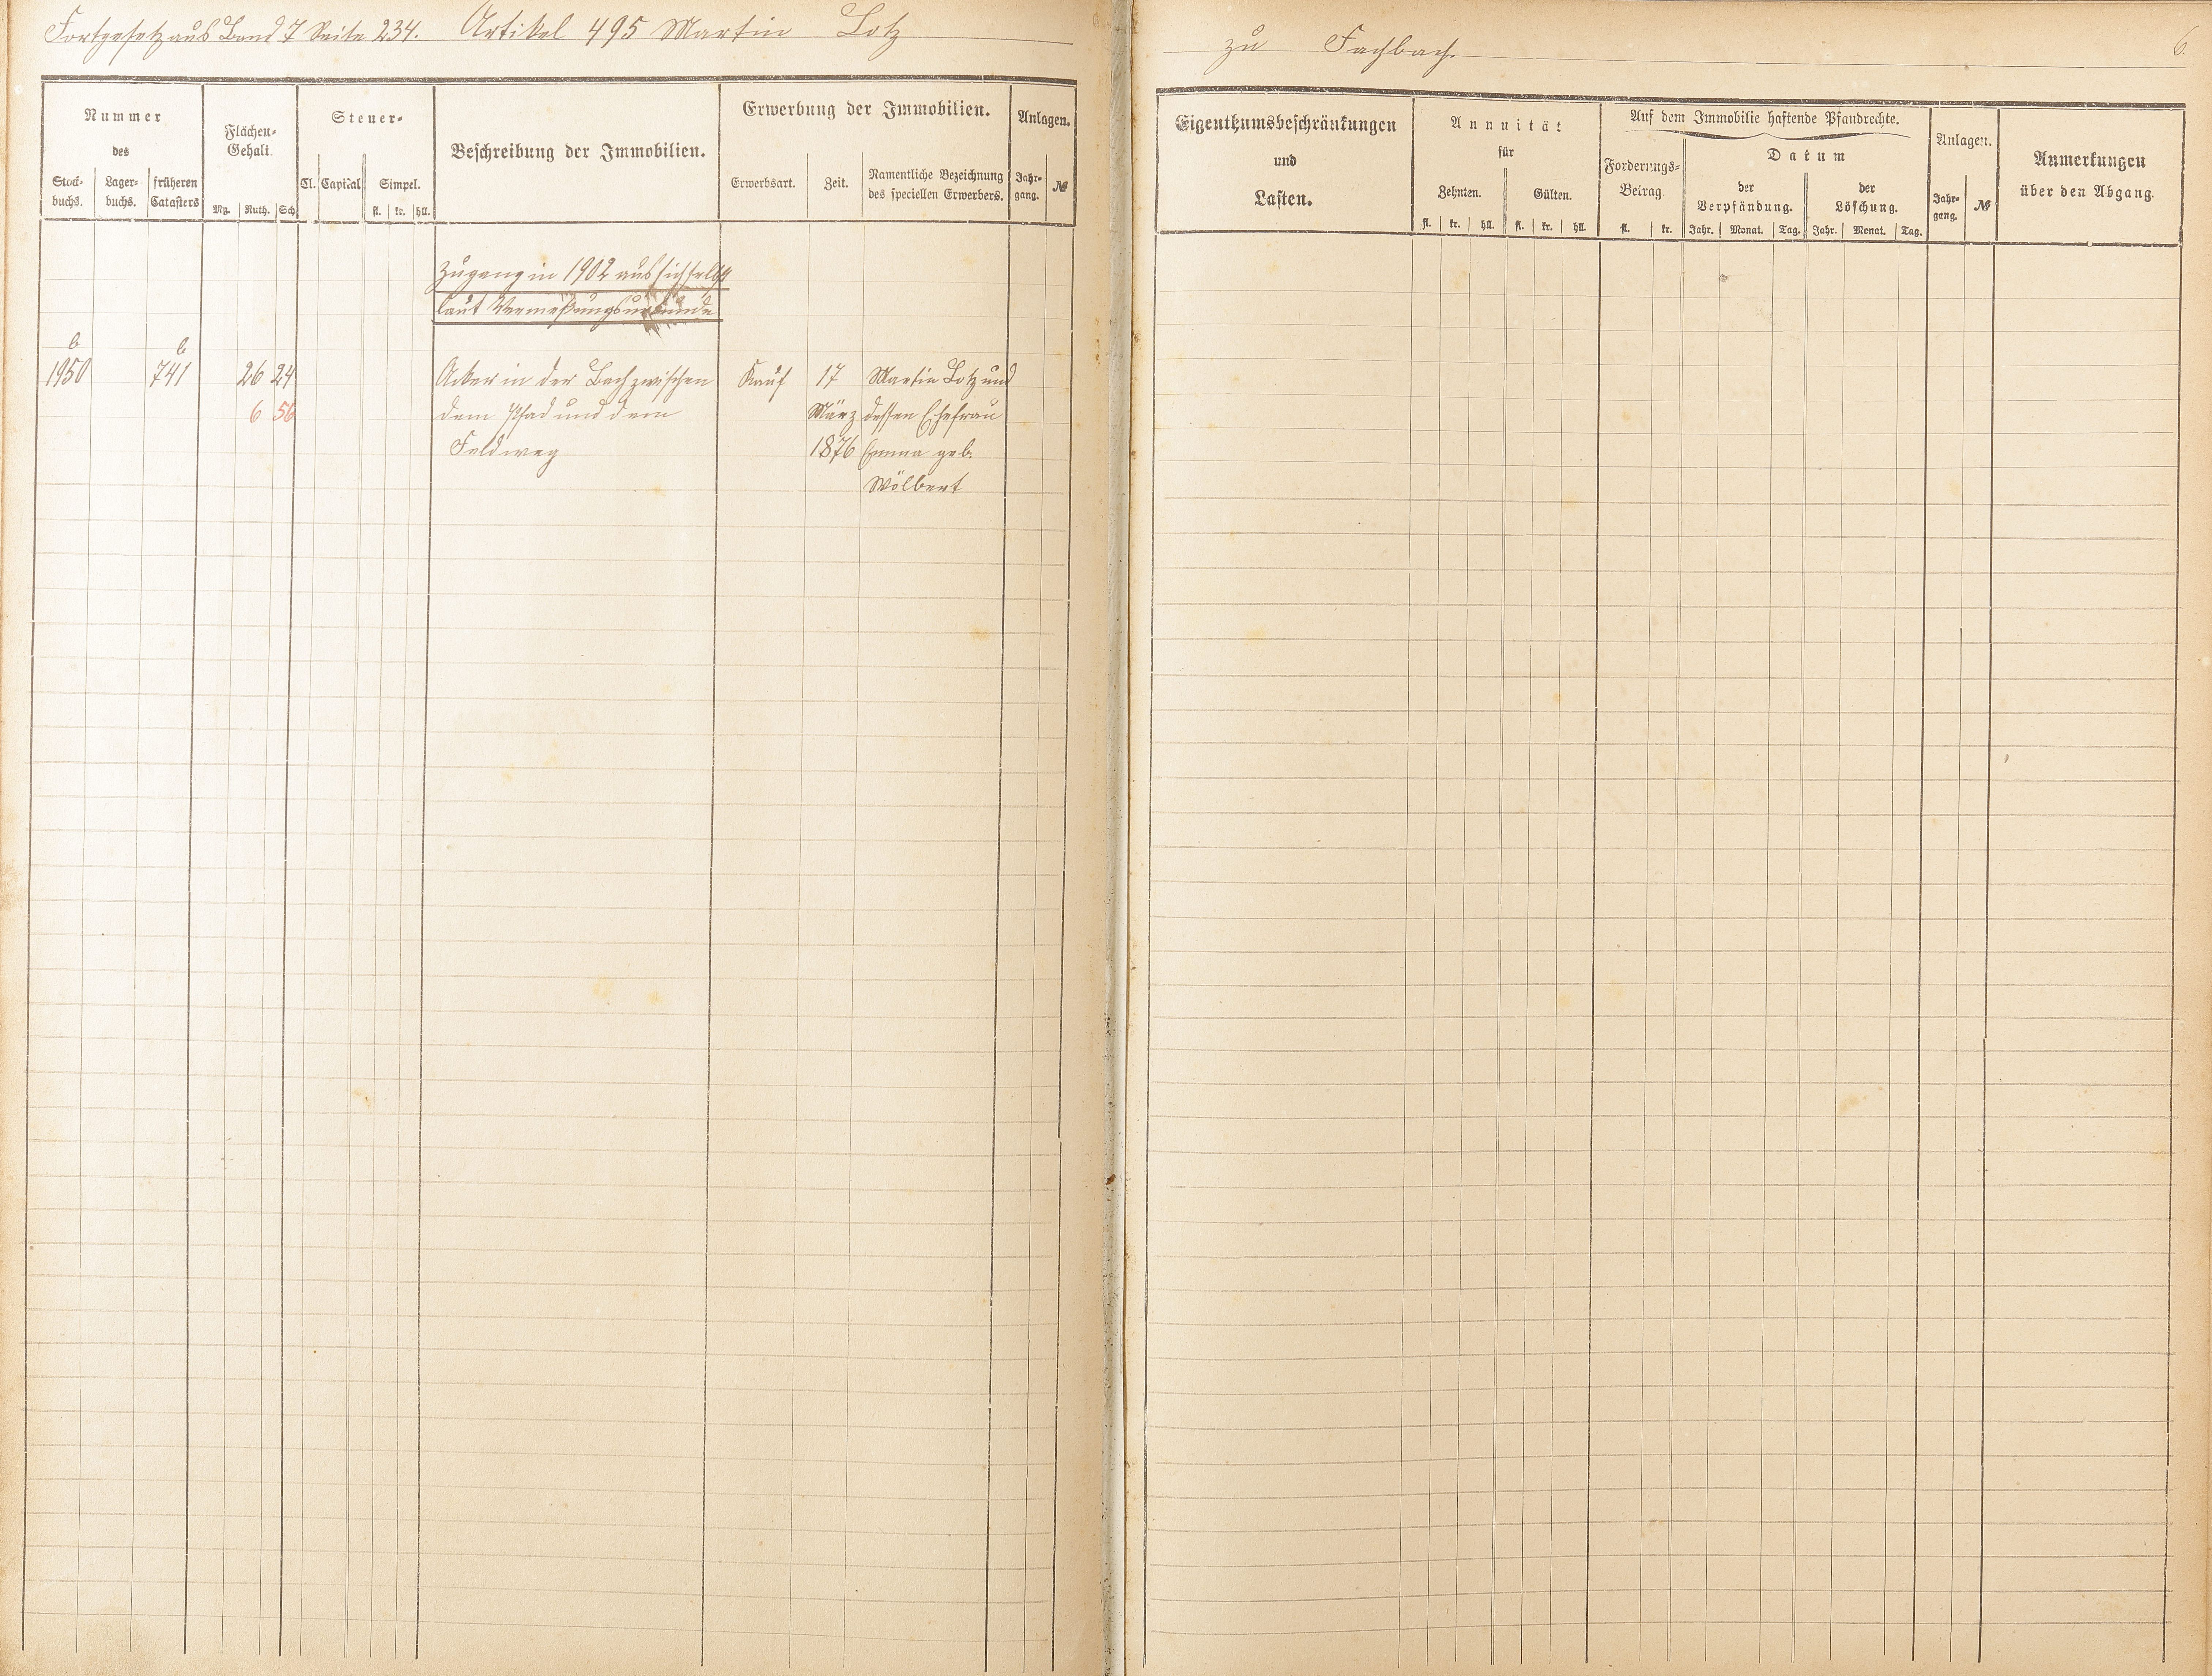 Fortgesetz aus Band 7 Seite 234. Artikel 495 Martin Lotz
zu Fachbach.
6.
Nummer
des
Stock-
buchs.
Lager-
buchs.
früheren
Catasters
Flächen-
Gehalt.
Mg. Ruth. Sch
Steuer-
Cl. Capital Simpel.
fl. kr. hll.
Beschreibung der Immobilien.
Erwerbung der Immobilien.
Erwerbsart. Zeit.
Namentliche Bezeichnung
des speciellen Erwerbers.
Anlagen.
Jahr-
gang.
№
Eigenthumsbeschränkungen
und
Lasten.
Annuität
für
Zehnten. Gülten.
fl. kr. hll. fl. kr. hll.
Auf dem Immobilie haftende Pfandrechte.
Forderungs-
Betrag.
fl. kr.
Datum
der
Verpfändung.
der
Löschung.
Jahr. Monat. Tag. Jahr. Monat. Tag.
Anlagen.
Jahr-
gang.
№
Anmerkungen
über den Abgang.
Zugang in 1902 aus sich selbst
laut Vermeßungsurkunde
b b
1950 741 26 24 Acker in der Bach zwischen Kauf 17 Martin Lotz und
6 56 dem Pfad und dem März dessen Ehefrau
Feldweg 1876 Emma geb.
Wölbert